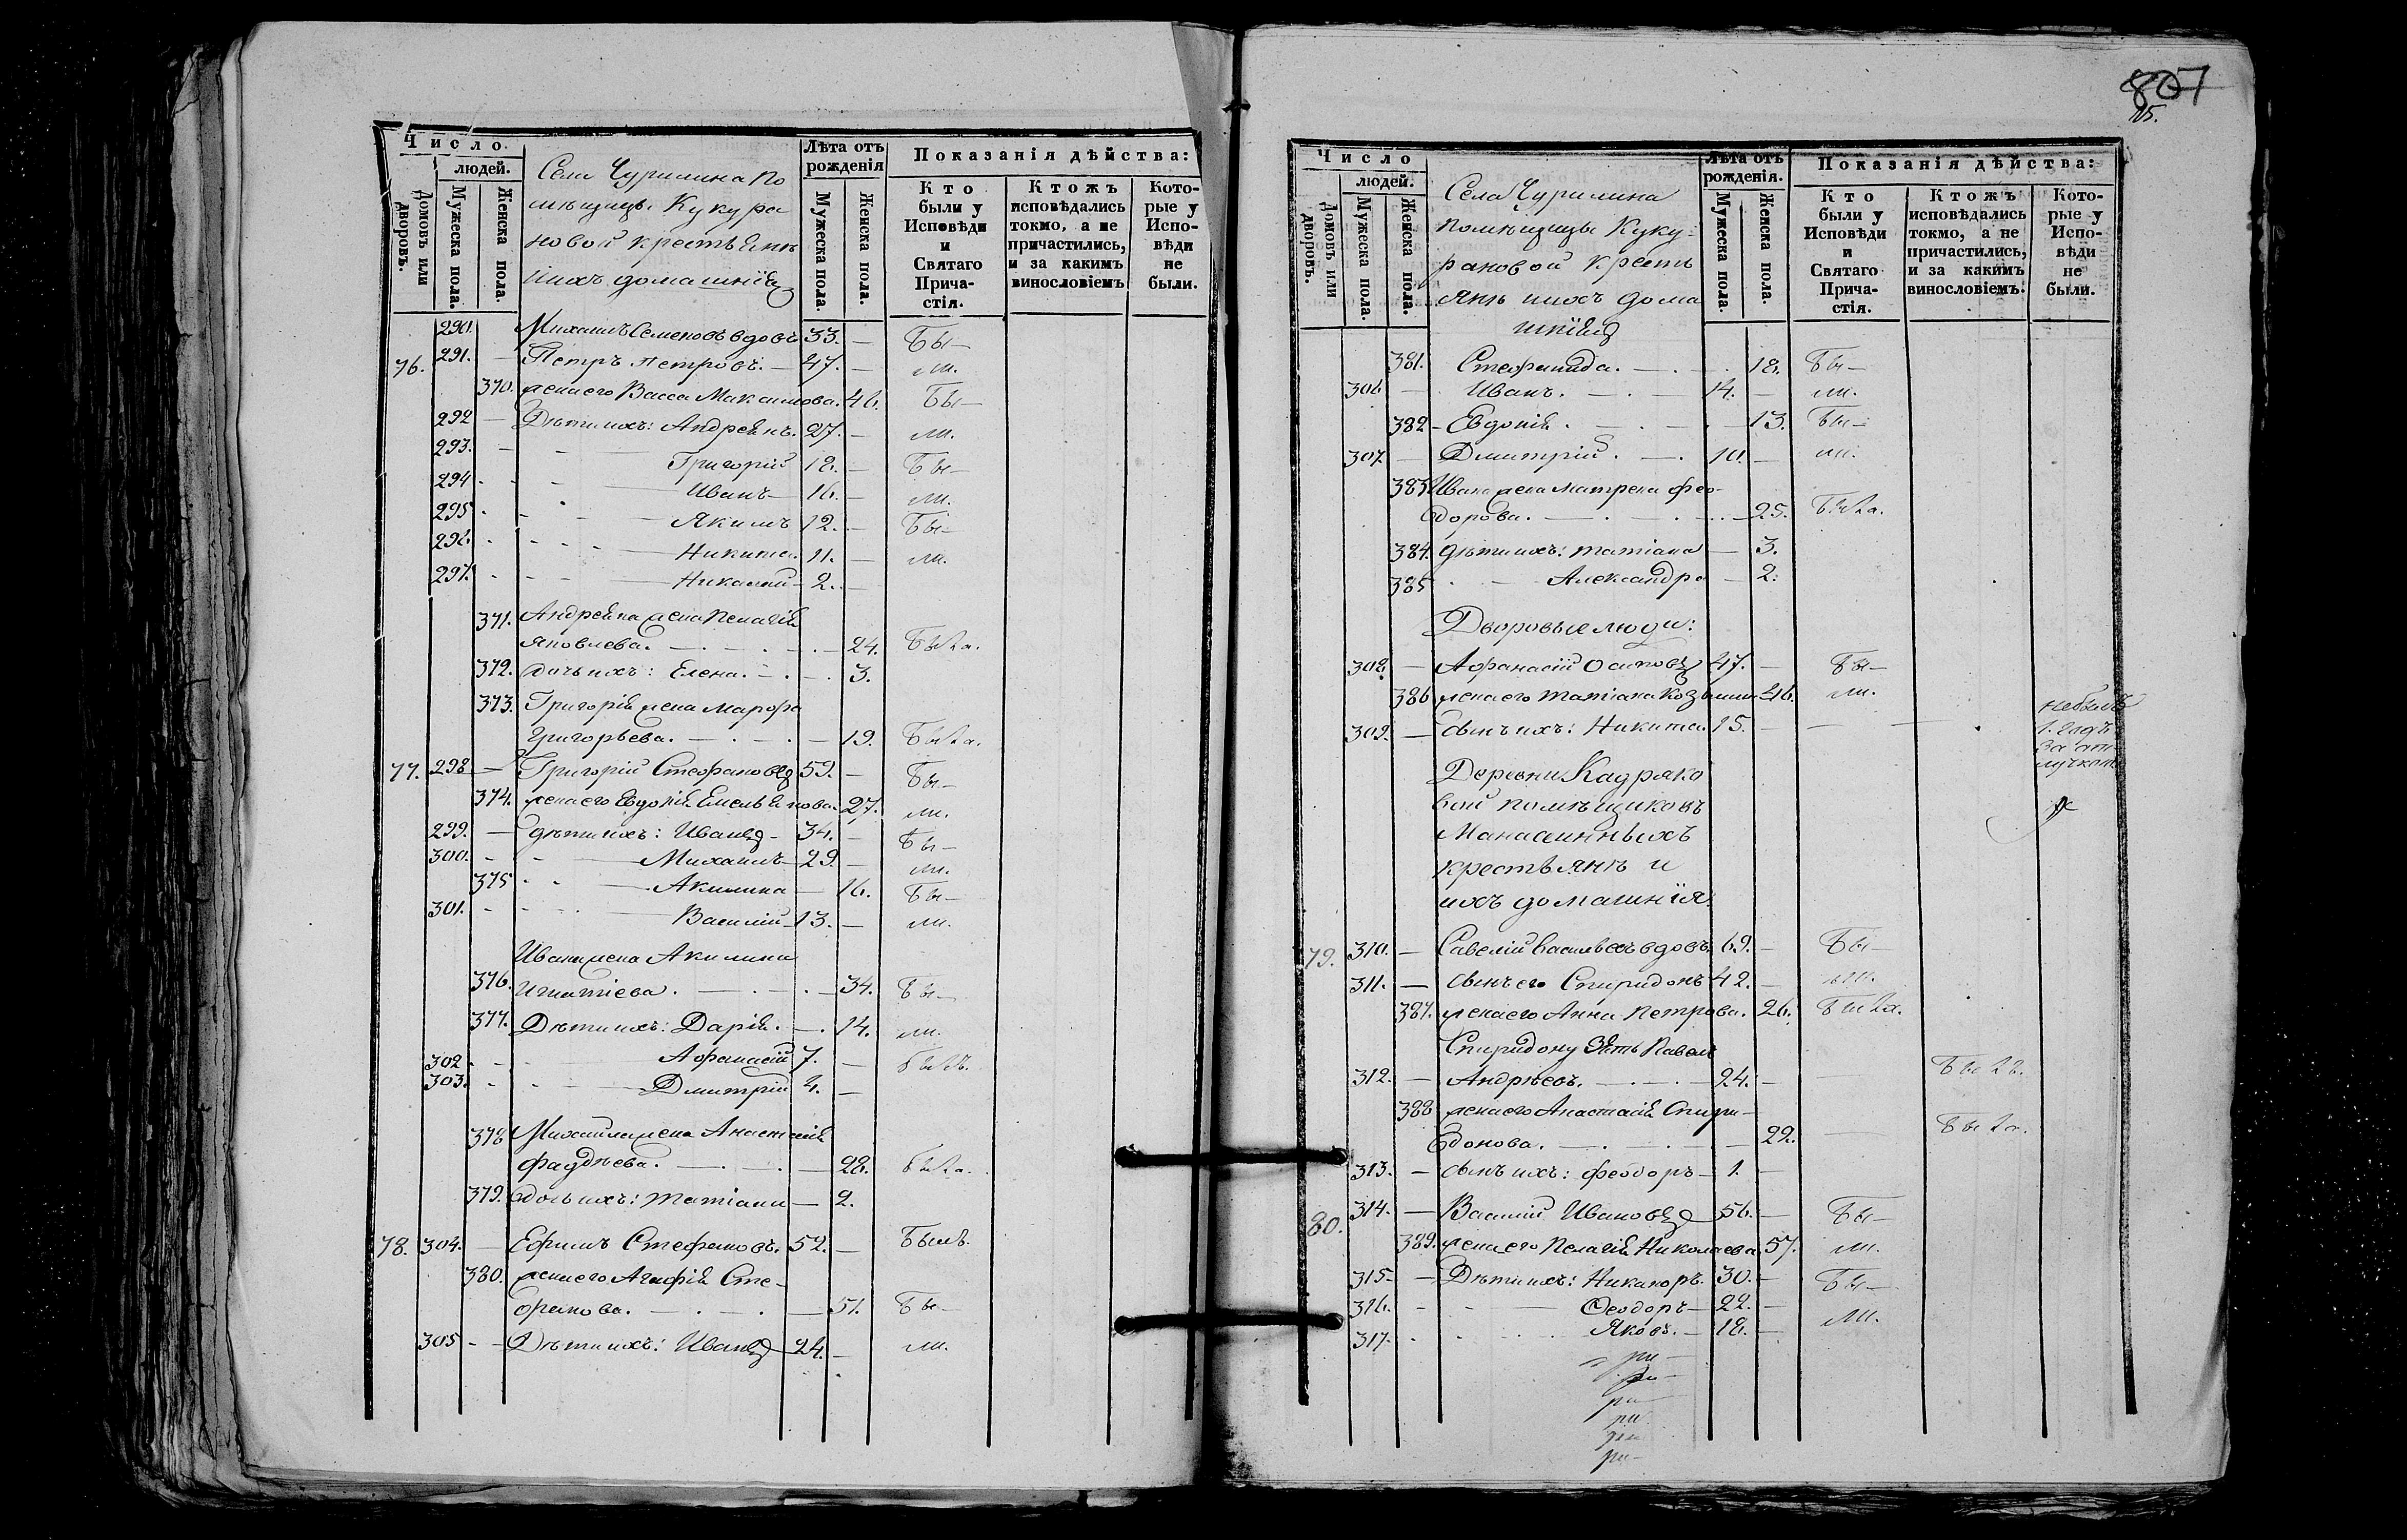 Число
людей.
Домовъ или дворовъ.
Мужеска пола.
Женска пола.
Села Чурилина по
мѣщицы Кукура
новой крестьяне
и ихъ домашнія
Лѣта отъ рожденія
Мужеска пола
Женска пола.
Показанія дѣйства:
Кто были у Исповѣди и Святаго Прича-стія.
Ктожъ исповѣдались токмо, а не причастились, и за какимъ винословіемъ
Кото-рые у Испо-вѣди не были.
290. Михаилъ Семеновъ вдовъ 33. — Бы—
76. 291. — Петръ Петровъ. — 47. — ли.
370. жена его Васса Максимова. 46. Бы—
292 — Дѣти ихъ: Андреянъ. 27. — ли.
293. — Григорій 18. — Бы—
294 — Иванъ — 16. — ли.
295 — Якимъ 12. — Бы—
296. — Никита. 11. — ли.
297. — Николай — 2. —
371. Андреяна жена Пелагія
Яковлева. — 24. Была.
372. дочь ихъ: Елена. — 3.
373. Григорія жена Марфа
Григорьева. — 19. Была.
77. 298 — Григорій Стефановъ 59. — Бы—
374. жена его Евдокія Емельянова. 27. ли.
299. — дѣти ихъ: Иванъ — 34. — Бы—
300. — Михаилъ — 29. — ли.
375 — Акилина — 16. Бы—
301. — Василій — 13. — ли.
Ивана жена Акилина
376. Игнатіева. — 34. Бы—
377. Дѣти ихъ: Дарія. — 14. ли.
302 — Афанасій 7. — былъ.
303. — Дмитрій 4. —
378 Михаила жена Анастасія
Фаддѣева. — 28. была.
379. дочь ихъ: Татіана — 2.
78. 304. — Ефимъ Стефановъ. 52. — Былъ.
380. жена его Агафія Сте-
фанова. — 51. Бы—
305 — Дѣти ихъ: Иванъ — 24. — ли.
807
15.
Число
людей.
Домовъ или дворовъ.
Мужеска пола.
Женска пола.
Села Чурилина
помѣщицы Куку-
рановой кресть
яне и ихъ дома
шнія
Лѣта отъ рожденія.
Мужеска пола
Женска пола.
Показанія дѣйства:
Кто были у Исповѣди и Святаго Прича-стія.
Ктожъ исповѣдались токмо, а не причастились, и за какимъ винословіемъ.
Кото-рые у Испо-вѣди не были.
381. Стефанида. — 18. Бы—
306. — Иванъ. — 14. — ли.
382 — Евдокія. — 13. Бы—
307. — Дмитрій. — 10. — ли.
383 Ивана жена Матрена Фео-
дорова. — 25. Была.
384. дѣти ихъ: Татіана — 3.
385 — Александра — 2.
Дворовые люди:
308. — Афанасій Осиповъ 47. — Бы—
386 жена его Татіана Козьмин. 46. ли.
309. — сынъ ихъ: Никита. 15. — небылъ
1. годъ
за от-
лучкою
Деревни Кадряко
вой помѣщиковъ
Манасеиныхъ
крестьяне и
ихъ домашнія:
79. 310. — Савелій Васильевъ вдовъ 69. — Бы—
311. — сынъ его Спиридонъ 42. — ли.
387. жена его Анна Петрова. 26. Была.
Спиридону Зять Павелъ
312. — Андрѣевъ. — 24. — Былъ.
388 жена его Анастасія Спири-
донова. — 22. — была.
313. — сынъ ихъ: Феодоръ — 1. —
80. 314. — Василій Ивановъ — 56. — Бы—
389. жена его Пелагія Николаева 57. ли.
315 — Дѣти ихъ: Никаноръ. 30. — Бы—
316. — Ѳеодоръ — 22. — ли.
317. — Яковъ. — 18. —